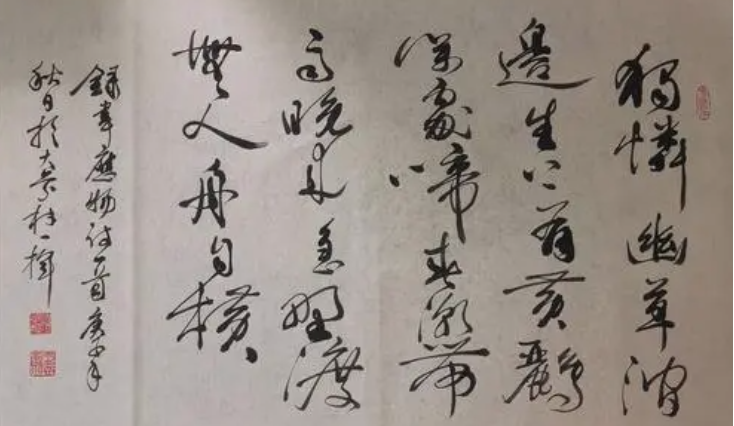 獨憐幽草澗
邊生上有黃鸝
深處啼春潮帶
雨晚來急野渡
無人舟自橫
錄韋應物詩一首庚子年
秋日於大